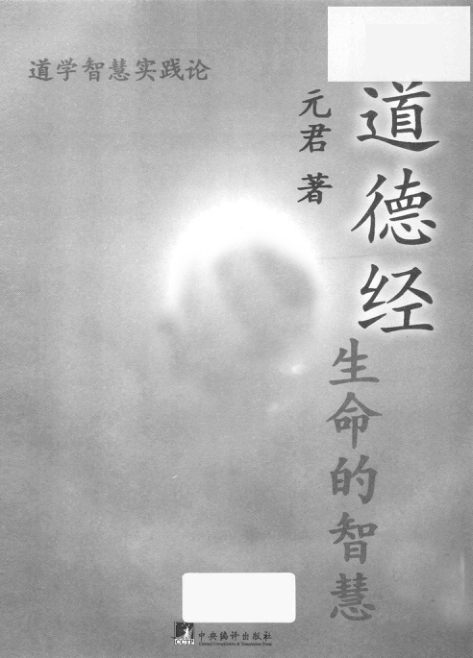 道学智慧实践论
道德经
生命的智慧
元君 著
CCTP
中央编译出版社
Central Compilation & Translation Press